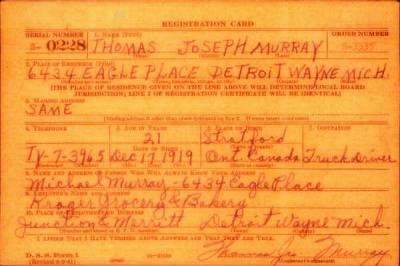 REGISTRATION CARD
SERIAL NUMBER 1. NAME (Print) ORDER NUMBER
S- 0228 THOMAS JOSEPH MURRAY
2. PLACE OF RESIDENCE (Print)
6434 EAGLE PLACE DETROIT WAYNE MICH
[THE PLACE OF RESIDENCE GIVEN ON THE LINE ABOVE WILL DETERMINE LOCAL BOARD
JURISDICTION; LINE 2 OF REGISTRATION CERTIFICATE WILL BE IDENTICAL]
3. MAILING ADDRESS
SAME
4. TELEPHONE 5. AGE IN YEARS 6. PLACE OF BIRTH 7. OCCUPATION
21 Stratford
Ty-7-3965 Dec 17 1919 Ont. Canada Truck Driver
8. NAME AND ADDRESS OF PERSON WHO WILL ALWAYS KNOW YOUR ADDRESS
Michael Murray - 6434 Eagle Place
9. EMPLOYER'S NAME AND ADDRESS
Kroger Grocery & Bakery
10. PLACE OF EMPLOYMENT OR BUSINESS
Junction & Merritt Detroit Wayne Mich.
I AFFIRM THAT I HAVE VERIFIED ABOVE ANSWERS AND THAT THEY ARE TRUE.
D. S. S. Form 1 Thomas Jos Murray